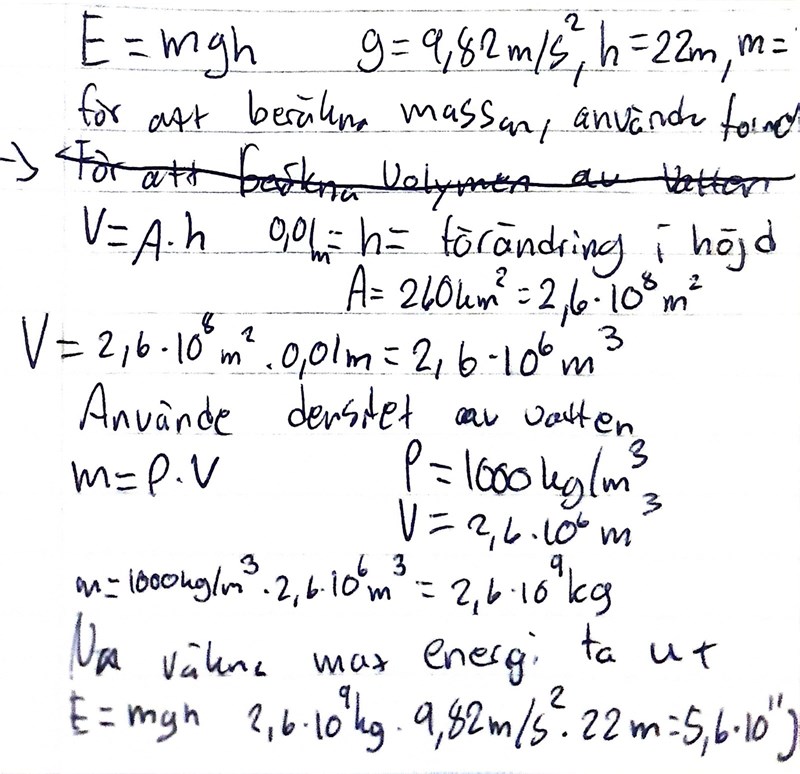 E = mgh g = 9,82 m/s², h = 22m, m =
för att beräkna massan, använde
→ För att beräkna Volymen av Vatten
V = A·h 0,01m = h = förändring i höjd
A = 260km² = 2,6·10⁸ m²
V = 2,6·10⁸ m² · 0,01m = 2,6·10⁶ m³
Använde densitet av vatten
m = ρ·V ρ = 1000 kg/m³
V = 2,6·10⁶ m³
m = 1000kg/m³ · 2,6·10⁶ m³ = 2,6·10⁹ kg
Nu räkna max energi ta ut
E = mgh 2,6·10⁹ kg · 9,82 m/s² · 22 m = 5,6·10¹¹ J